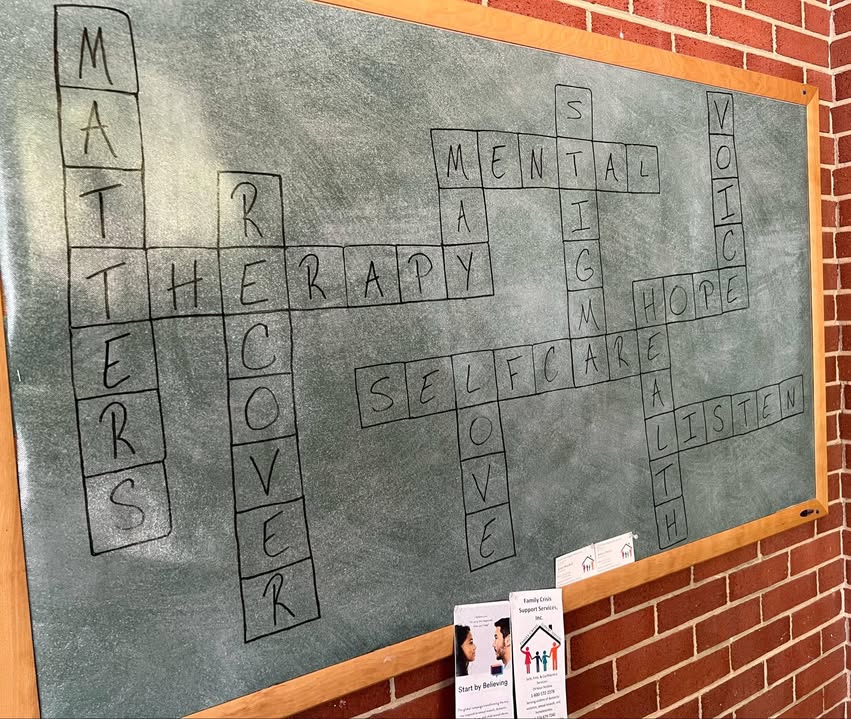 MATTERS
THERAPY
RECOVER
MAY
MENTAL
STIGMA
VOICE
HOPE
HEALTH
SELFCARE
LOVE
LISTEN
Start by Believing
Family Crisis
Support Services,
Inc.